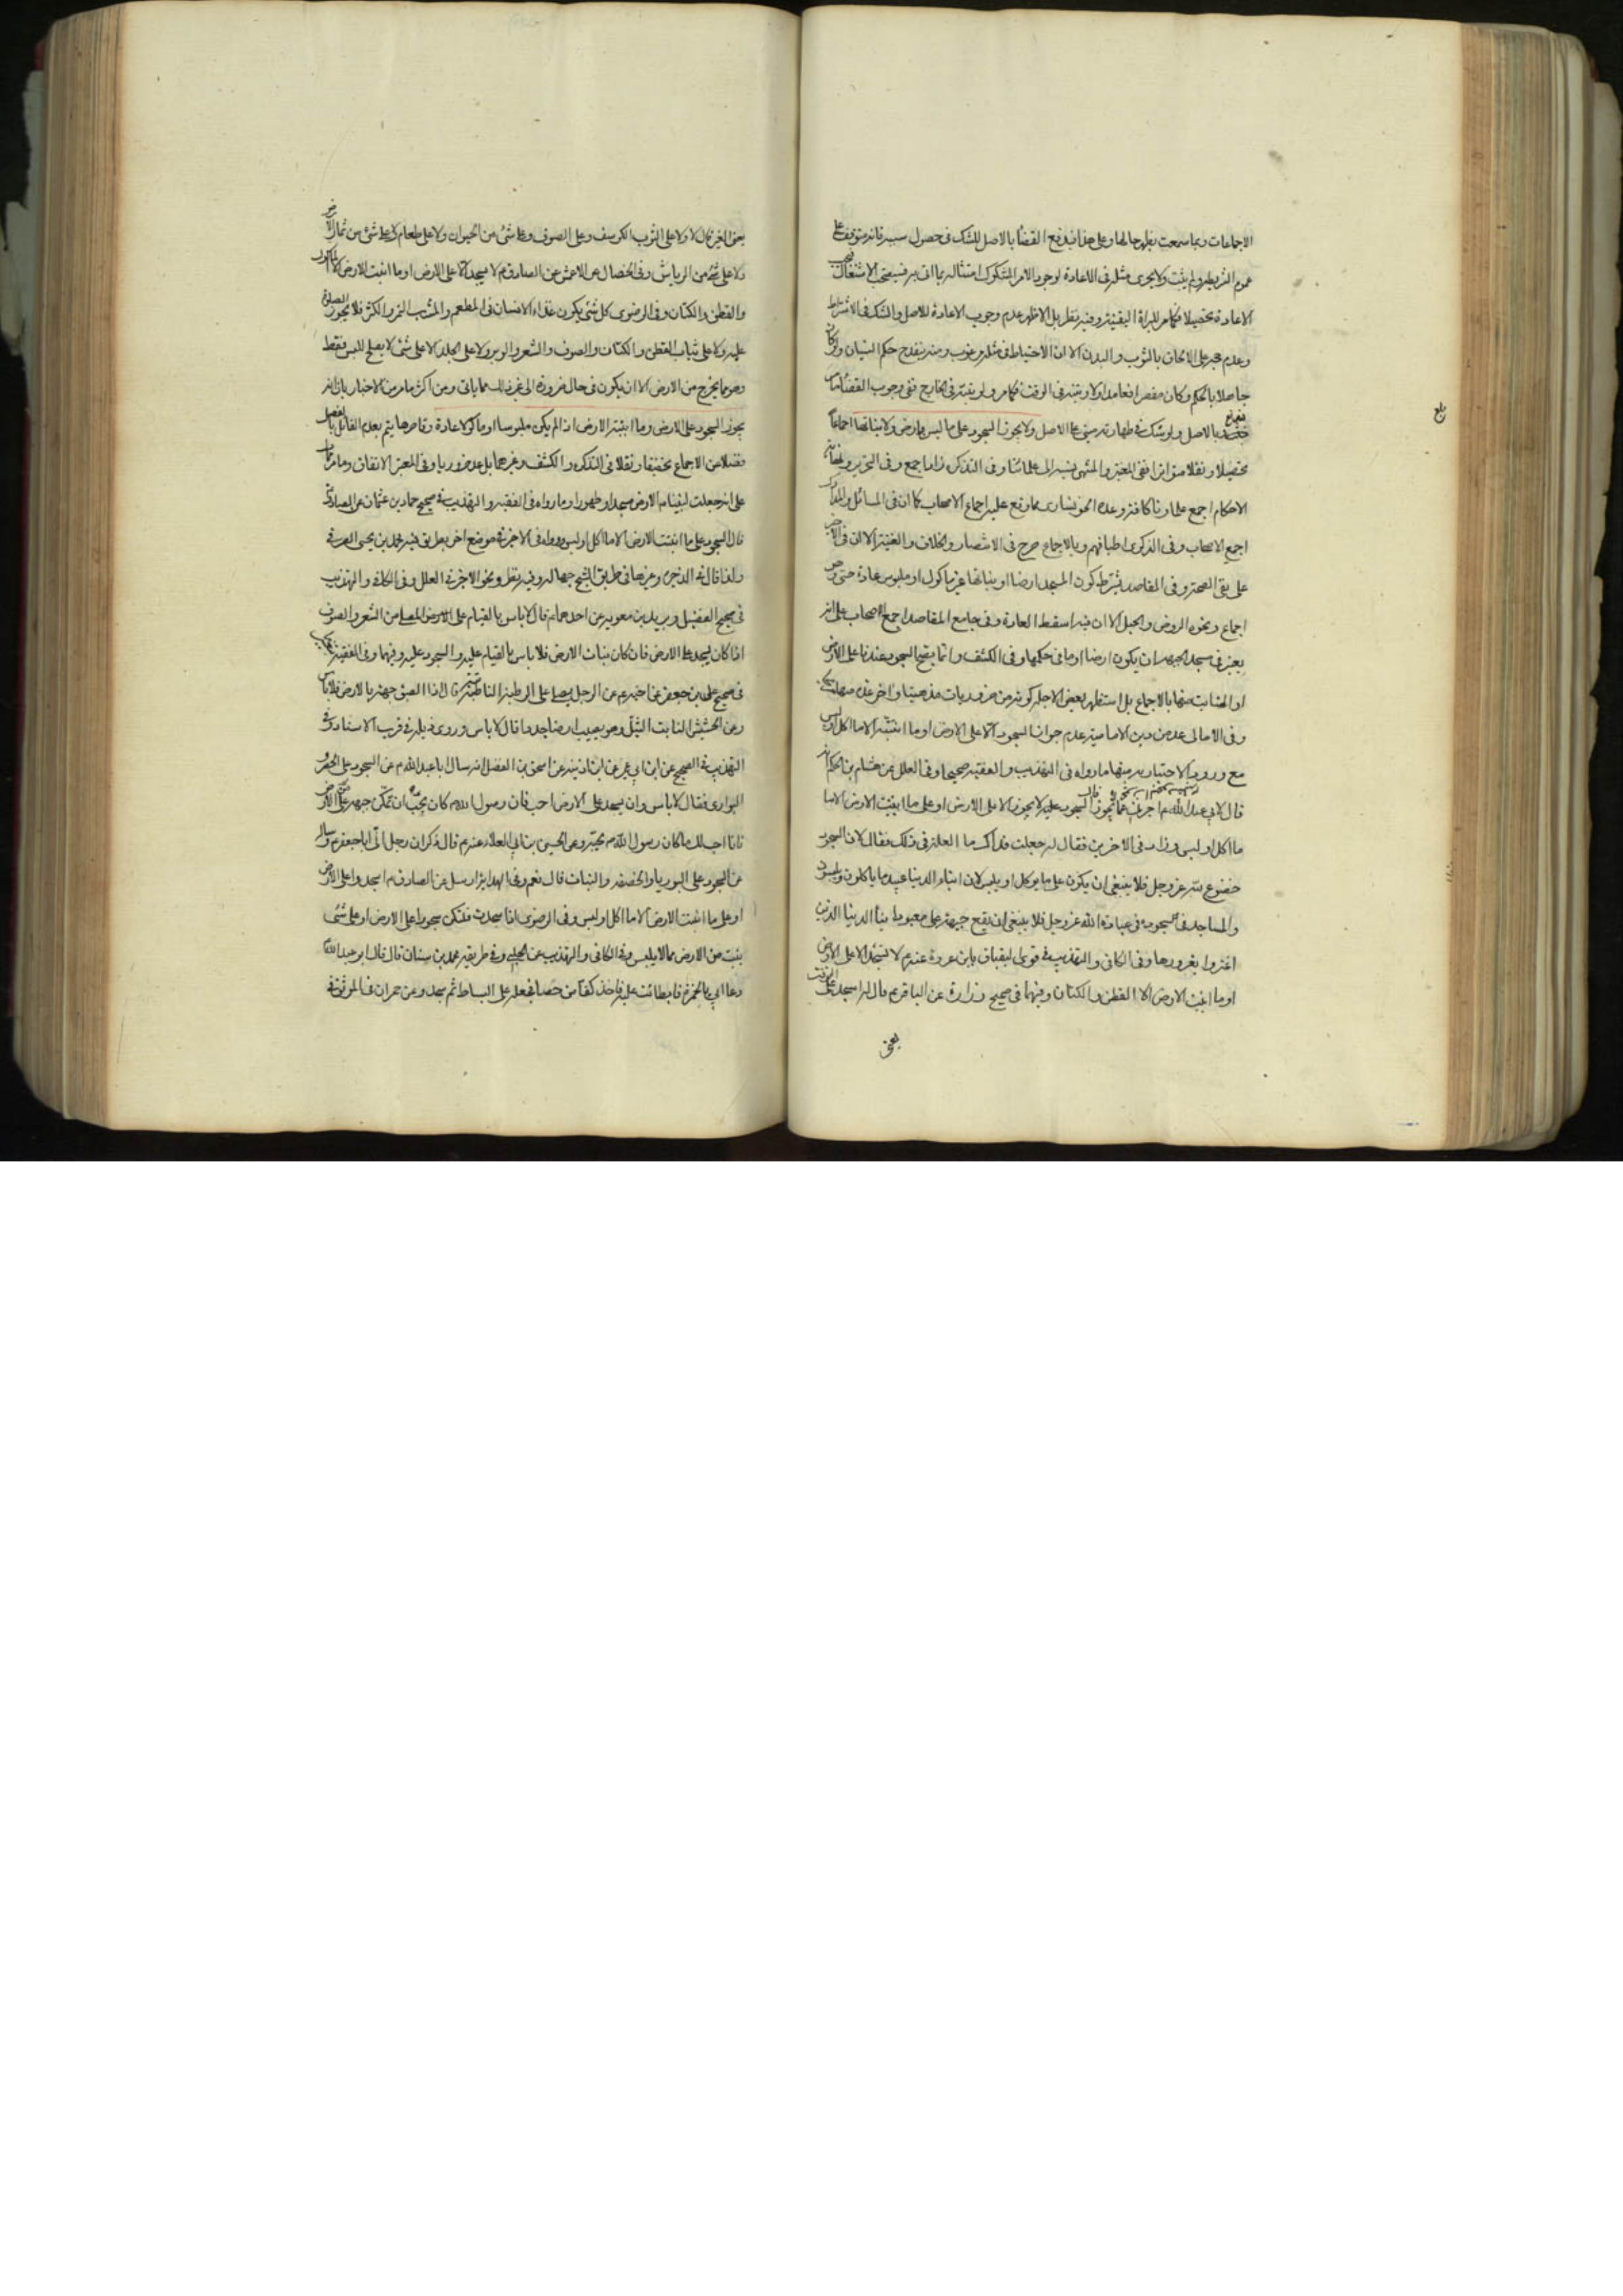 الاجماعات وبما سمعت يظهر حالها وعلى هذا فيدفع القضاء بالاصل للشك فى حصول سببه فانه متوقف على
عموم الشرطية ولم يثبت ولا يجرى مثله فى الاعادة لوجود الامر المشكوك امتثاله بما اتى به فيستصحب الاشتغال
الاعادة تحصيلا للبراة اليقينية وفيه نظر بل الاظهر عدم وجوب الاعادة للاصل والشك فى الاشتراط
وعدم على الالحاق بالثوب والبدن الا ان الاحتياط فى مثله مرغوب ومنه ينقدح حكم النسيان ولو كان
جاهلا بالحكم وكان مقصرا فعامد اولا وتبينه فى الوقت فكما مر ولو تبينه فى الخارج نفى وجوب القضاء
بالاصل ولو شك فى طهارته بنى على الاصل ولا يجوز السجود على ما ليس بارض ولا بنباتها اجماعا
تحصيلا ونقلا متواترا ففى المعتبر والمنتهى نسبه الى علمائنا وفى التذكرة اجمع وفى التحرير ونهاية
الاحكام اجمع علماؤنا كافة وعده مما وقع عليه اجماع الاصحاب كما ان فى المسائل والمدارك
اجمع الاصحاب وفى الذكرى اطباقهم وبالاجماع صرح فى الانتصار والخلاف والغنية الا ان فى الاخير
على نفى الصحة وفى المقاصد يشترط كون المسجد ارضا او نباتها غير ماكول او ملبوس عادة
اجماع ونحوه الروض والحبل الا ان فيه اسقط العادة وفى جامع المقاصد اجمع الاصحاب على انه
يعتبر فى مسجد الجبهة ان يكون ارضا او ما فى حكمها وفى الكشف وانما يصح السجود عندنا على الارض
او النابت منها بالاجماع بل استظهر بعض الاجلة كونه من ضروريات مذهبنا واخر عده منها
وفى الامالى عده من دين الامامية عدم جواز السجود الا على الارض او ما انبتته الا ما اكل او لبس
مع ورود الاخبار به منها ما رواه فى التهذيب والفقيه صحيحا وفى العلل عن هشام بن الحكم انه
قال لابي عبد الله م اخبرنى عما يجوز السجود عليه وعما لا يجوز قال السجود لا يجوز الا على الارض او على ما انبتت الارض الا ما
ما اكل او لبس وزاد فى الاخرين فقال له جعلت فداك ما العلة فى ذلك فقال لان السجود
خضوع لله عز وجل فلا ينبغى ان يكون على ما يوكل او يلبس لان ابناء الدنيا عبيد ما ياكلون ويلبسون
والساجد فى سجوده فى عبادة الله عز وجل فلا ينبغى ان يضع جبهته على معبود ابناء الدنيا الذين
اغتروا بغرورها وفى الكافى والتهذيب فى قوى البقباق بابن عروة عنه م لا تسجد الا على الارض
او ما انبتت الارض الا القطن والكتان وفيهما فى صحيح زرارة عن الباقر م قال له اسجد على الزفت
يعنى
يعنى القير قال لا ولا على الثوب الكرسف وعلى الصوف وعلى شئ من الحيوان ولا على طعام ولا على شئ من ثمار الارض
ولا على شئ من الرياش وفى الخصال عن الاعمش عن الصادق م لا يسجد الا على الارض او ما انبتت الارض الا الماكول
والقطن والكتان وفى الرضوى كل شئ يكون غذاء الانسان فى المطعم والمشرب من التمر والكثر فلا يجوز الصلوة
عليه ولا على ثياب القطن والكتان والصوف والشعر والوبر ولا على الجلد الا على شئ لا يصلح للبس فقط
وهو مما يخرج من الارض الا ان يكون فى حال ضرورة الى غير ذلك مما ياتى ومن اكثر ما مر من الاخبار بان انه
يجوز السجود على الارض وما انبتته الارض اذا لم يكن ملبوسا او ماكولا عادة وقاصرها يتم بعدم القائل بالفصل
فضلا عن الاجماع تحقيقا ونقلا فى التذكرة والكشف وغيرهما بل عد ضروريا وفى المعتبر الاتفاق وما مر
على انه جعلت لنبينا م الارض مسجدا وطهورا وما رواه فى الفقيه والتهذيب فى صحيح حماد بن عثمان عن الصادق م
قال السجود على ما انبتت الارض الا ما اكل او لبس ورواه فى الاخر فى موضع اخر بطريق فيه محمد بن يحيى الصيرفى
ولذا قال فى الذخيرة وغيرها فى طريق الشيخ جهالة وفيه نظر ونحو الاخر فى العلل وفى الكافى والتهذيب
فى صحيح الفضيل وبريد بن معوية عن احدهما م قال لا باس بالقيام على المصلى من الشعر والصوف
اذا كان يسجد على الارض فان كان نبات الارض فلا باس بالقيام عليه والسجود عليه وفيهما وفى الفقيه
فى صحيح على بن جعفر عن اخيه م عن الرجل يصلى على الرطبة النابتة قال اذا الصق جبهته بالارض فلا باس
وعن الحشيش النابت الثيل وهو يصيب ارضا جددا قال لا باس وروى ذيله فى قرب الاسناد وفى
التهذيب فى الصحيح عن ابن ابي عمير عن ابن اذينه عن اسحق بن الفضل انه سال ابا عبد الله م عن السجود على الحصر و
البوارى فقال لا باس وان يسجد على الارض احب فان رسول الله م كان يحب ان تمكن جبهته على الارض
فانا احب لك ما كان رسول الله م يحبه وعن الحسين بن ابي العلاء عنه م قال ذكر ان رجل اتى ابا جعفر م وساله
عن السجود على البوريا والخصفة والنبات قال نعم وفى الهداية ارسل عن الصادق م اسجدوا على الارض
او على ما انبتت الارض الا ما اكل او لبس وفى الرضوى اذا سجدت فلتكن سجودك على الارض او على شئ
ينبت من الارض مما لا يلبس وفى الكافى والتهذيب عن الحلبي وفى طريقه محمد بن سنان قال قال ابو عبد الله
دعا ابي بالخمرة فابطات عليه فاخذ كفا من حصا فجعله على البساط ثم سجد وعن حمران فى الموثق